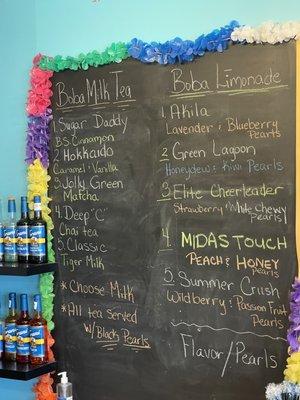 Boba Milk Tea
1. Sugar Daddy
BS Cinnamon
2 Hokkaido
Caramel & Vanilla
3. Jolly Green
Matcha
4. Deep "C"
Chai tea
5. Classic
Tiger Milk
* Choose Milk
* All tea served
w/Black Pearls
Boba Limonade
1. Akila
Lavender & Blueberry
Pearls
2 Green Lagoon
Honeydew & Kiwi Pearls
3 Elite Cheerleader
Strawberry & White Chewy
Pearls
4. MIDAS TOUCH
PEACH & HONEY
Pearls
5. Summer Crush
Wildberry & Passion Fruit
Pearls
Flavor/Pearls